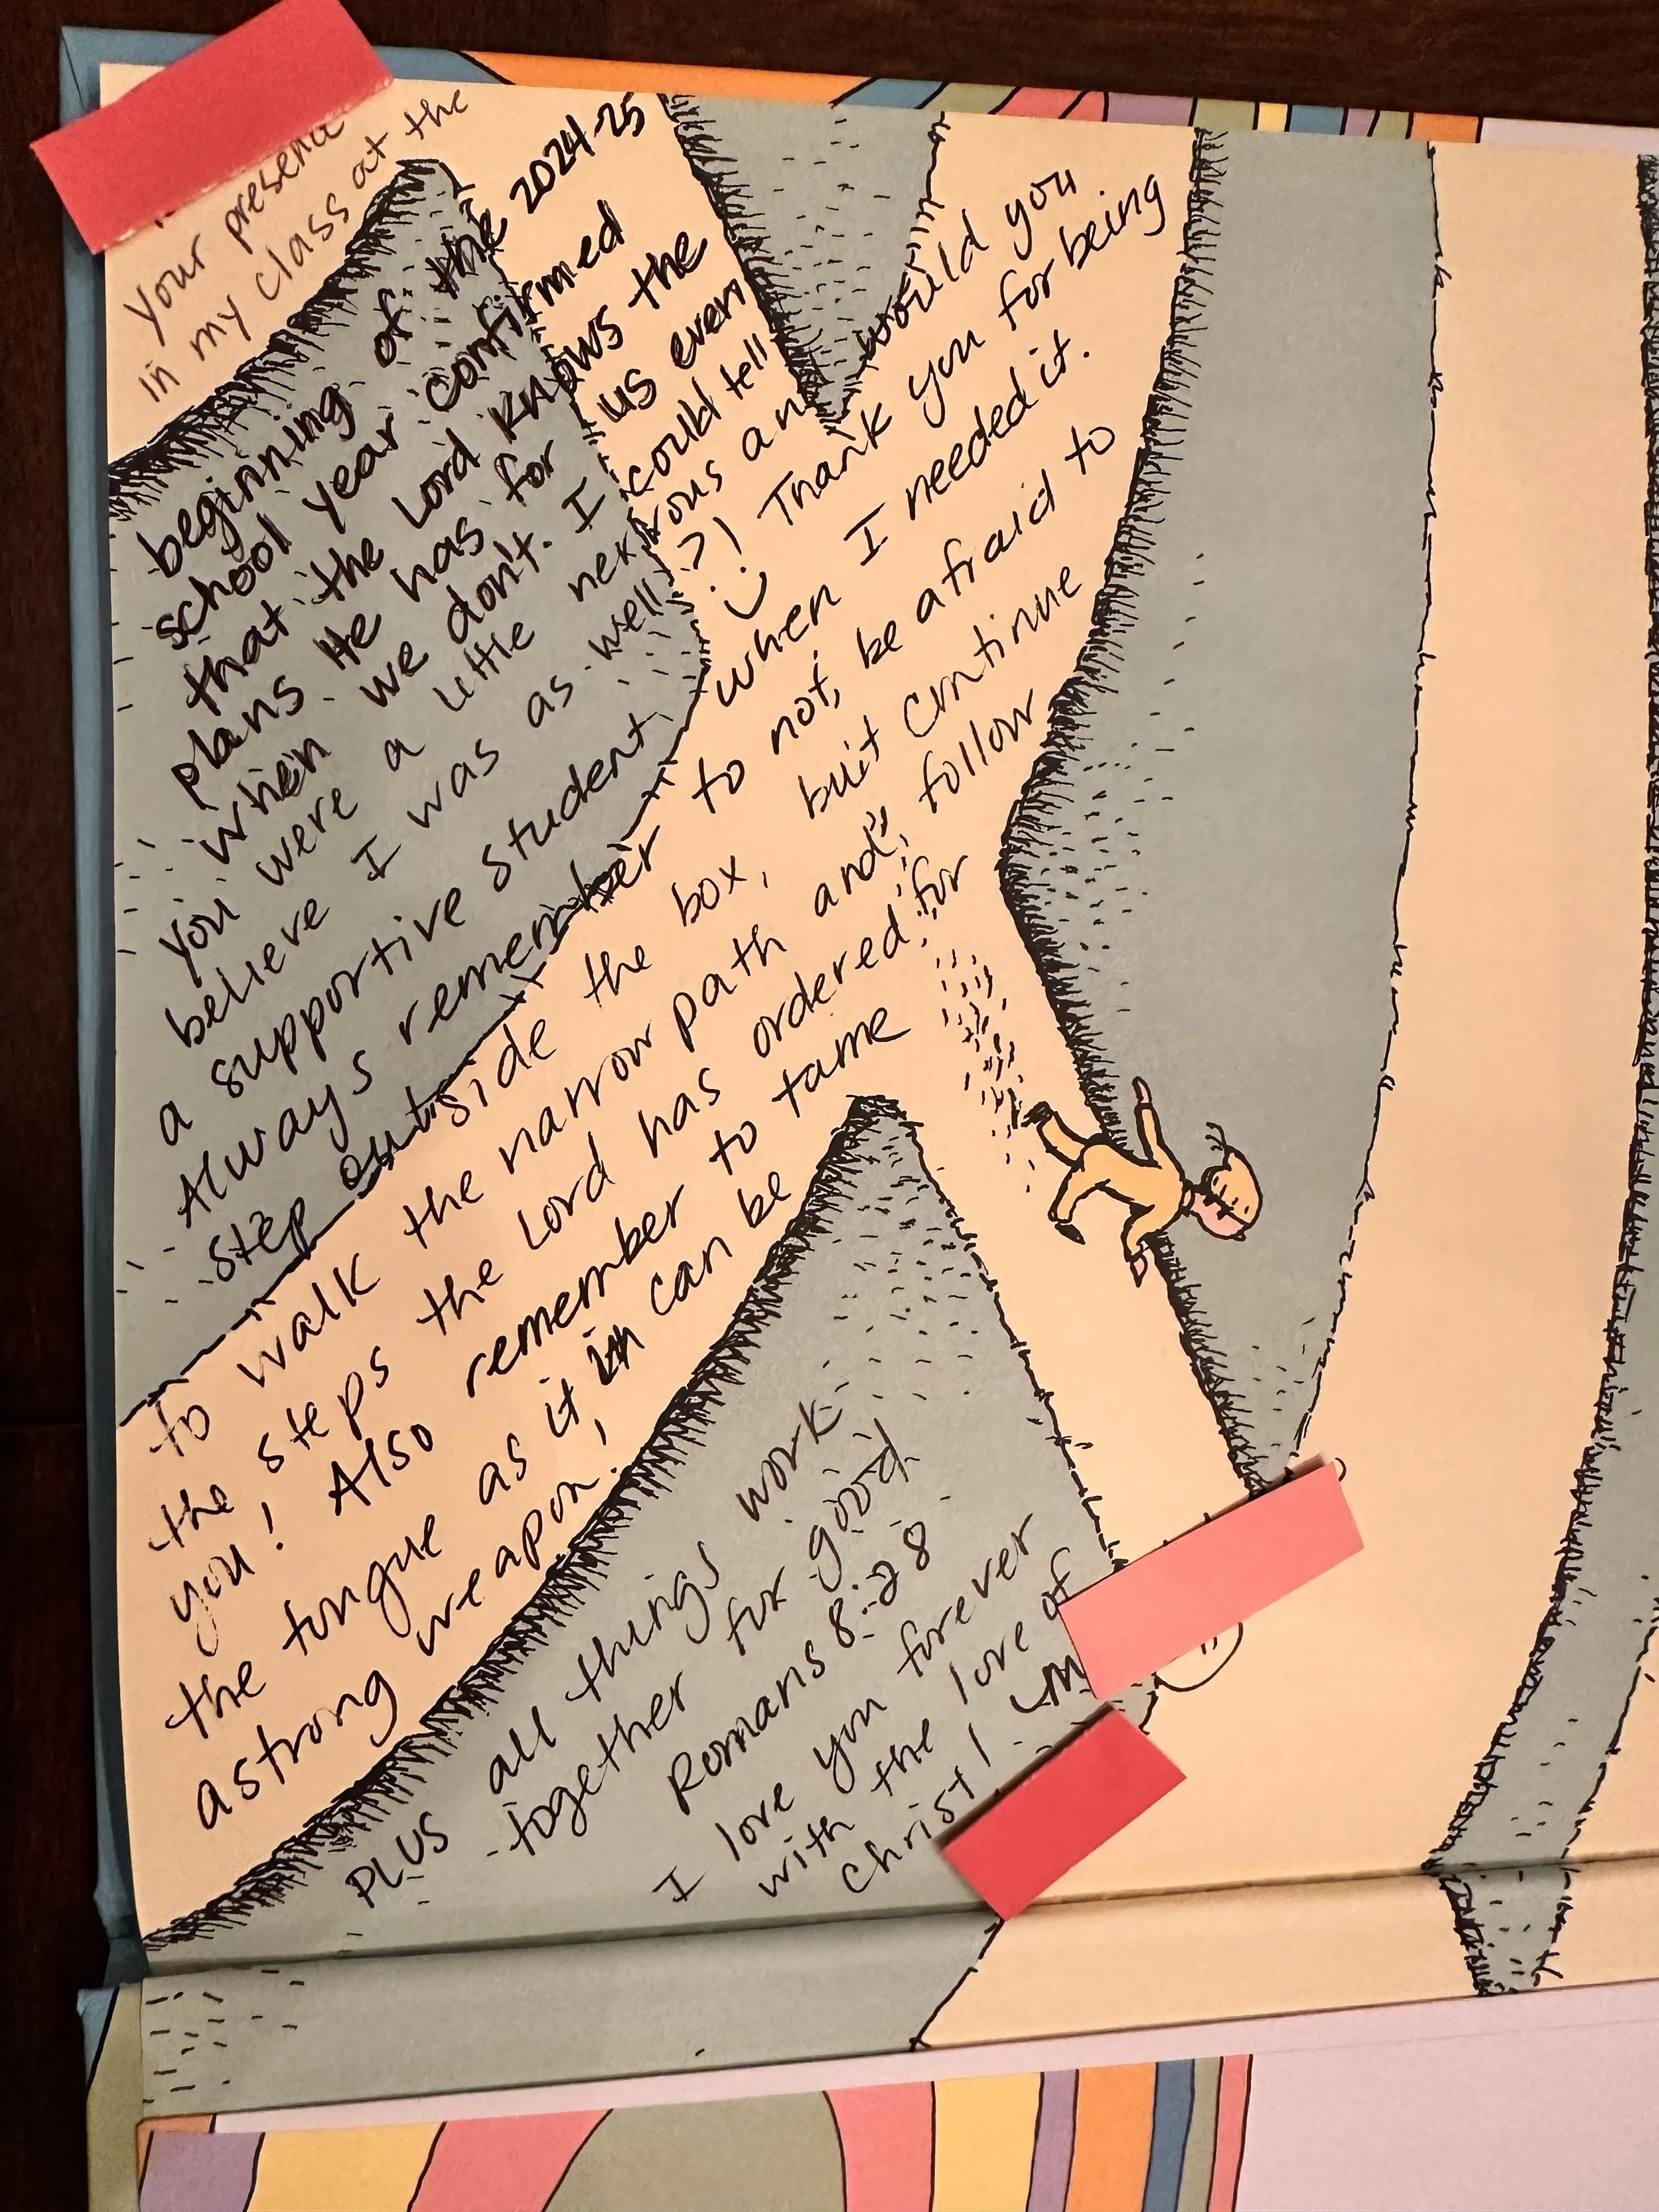 your presence
in my class at the
beginning of the 2024-25
school year confirmed
that the Lord knows the
plans He has for us even
when we don't. I could tell
you were a little nervous and would you
believe I was as well?! Thank you for being
a supportive student when I needed it.
Always remember to not, be afraid to
step outside the box, but continue
to walk the narrow path and, follow
the steps the Lord has ordered for
you! Also remember to tame
the tongue as it in can be
a strong weapon!
PLUS all things work
together for good
Romans 8:28
I love you forever
with the love of
Christ!